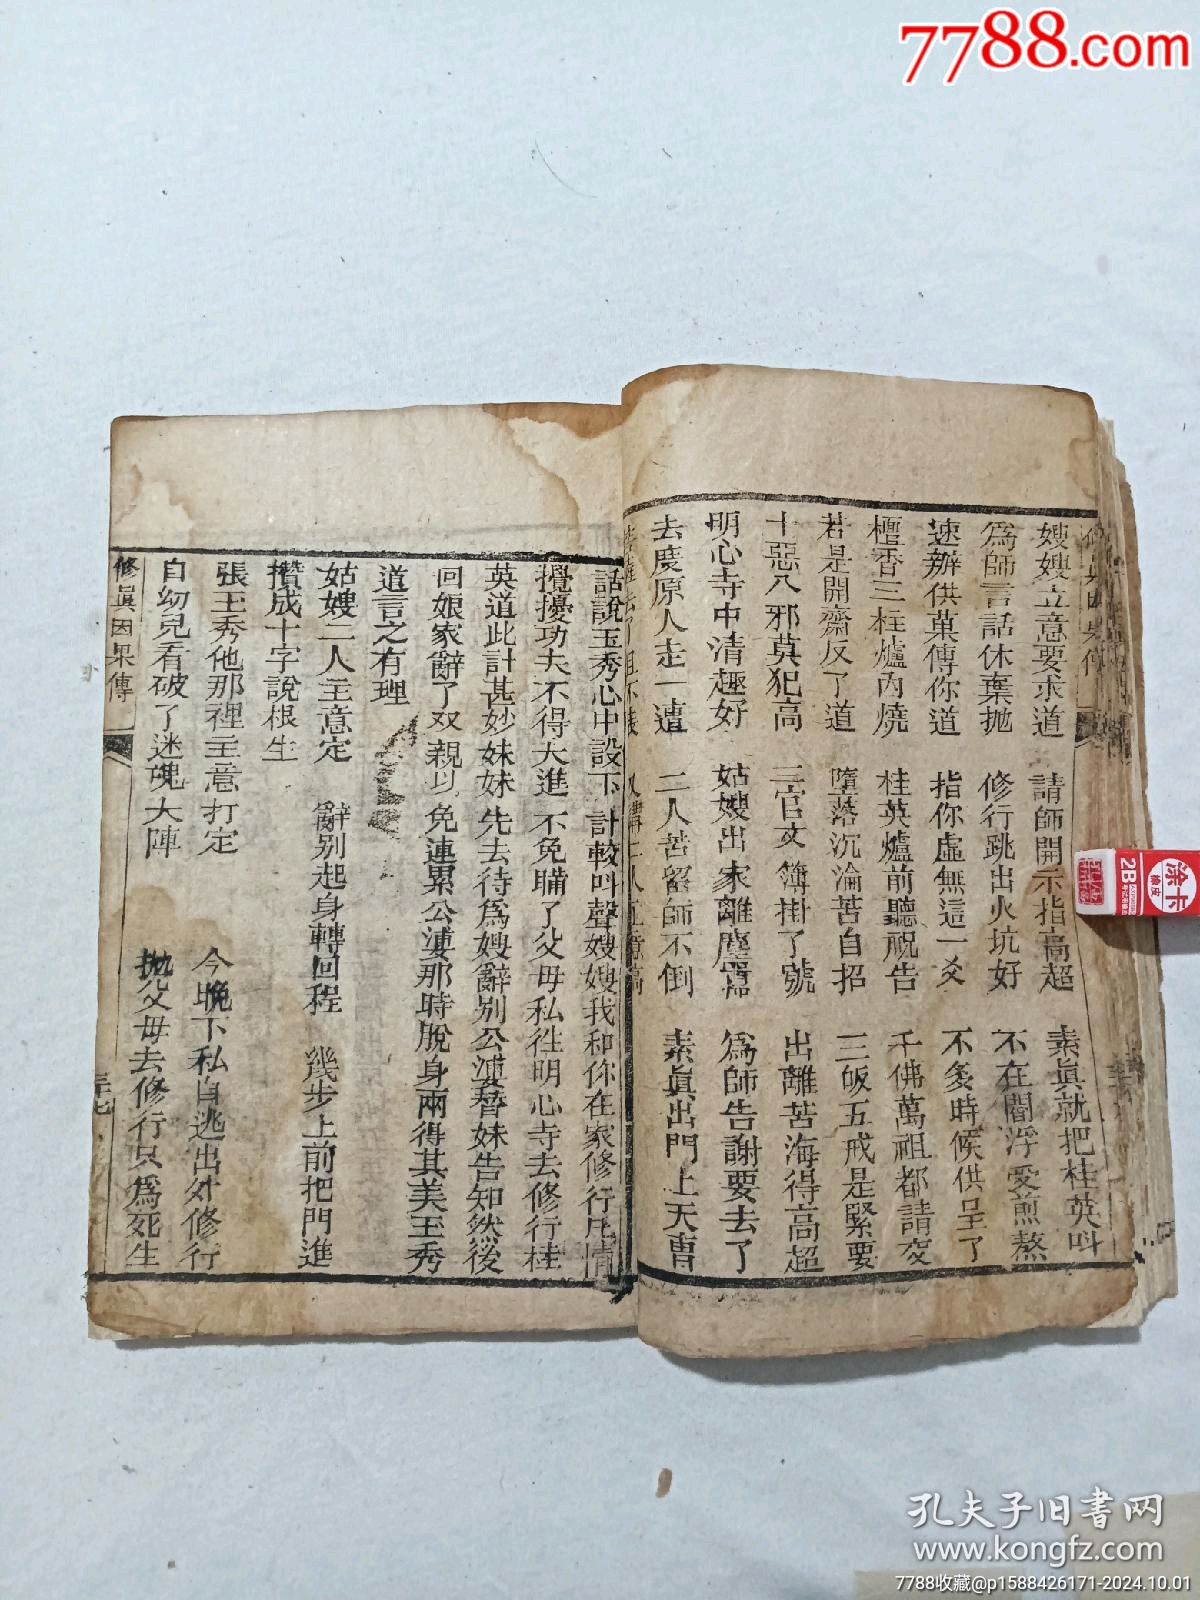 7788.com
嫂嫂立意要求道 請師開示指高超 素眞就把桂英呌
爲師言話休棄抛 修行跳出火坑好 不在閻浮受煎熬
速辦供菓傳你道 指你虛無這一爻 不多時候供呈了
檀香三柱爐內燒 桂英爐前聽祝告 千佛萬祖都請交
若是開齋反了道 墮落沉淪苦自招 三皈五戒是緊要
十惡八邪莫犯高 三官文簿掛了號 出離苦海得高超
明心寺中清趣好 姑嫂出家離塵 爲師告謝要去了
去度原人走一遭 二人苦留師不倒 素眞出門上天曹
話說玉秀心中設下計較呌聲嫂嫂我和你在家修行凡情
攪擾功夫不得大進不免瞞了父母私往明心寺去修行桂
英道此計甚妙妹妹先去待爲嫂辭别公婆替妹告知然後
回娘家辭了双親以免連累公婆那時脫身兩得其美玉秀
道言之有理
姑嫂二人主意定 辭别起身轉回程 幾步上前把門進
攢成十字說根生
張玉秀他那裡主意打定 今晚下私自逃出外修行
自幼兒看破了迷魂大陣 抛父母去修行只爲死生
修眞因果傳
三十七
涂卡
橡皮
2B
孔夫子旧书网
www.kongfz.com
7788收藏@p1588426171-2024.10.01